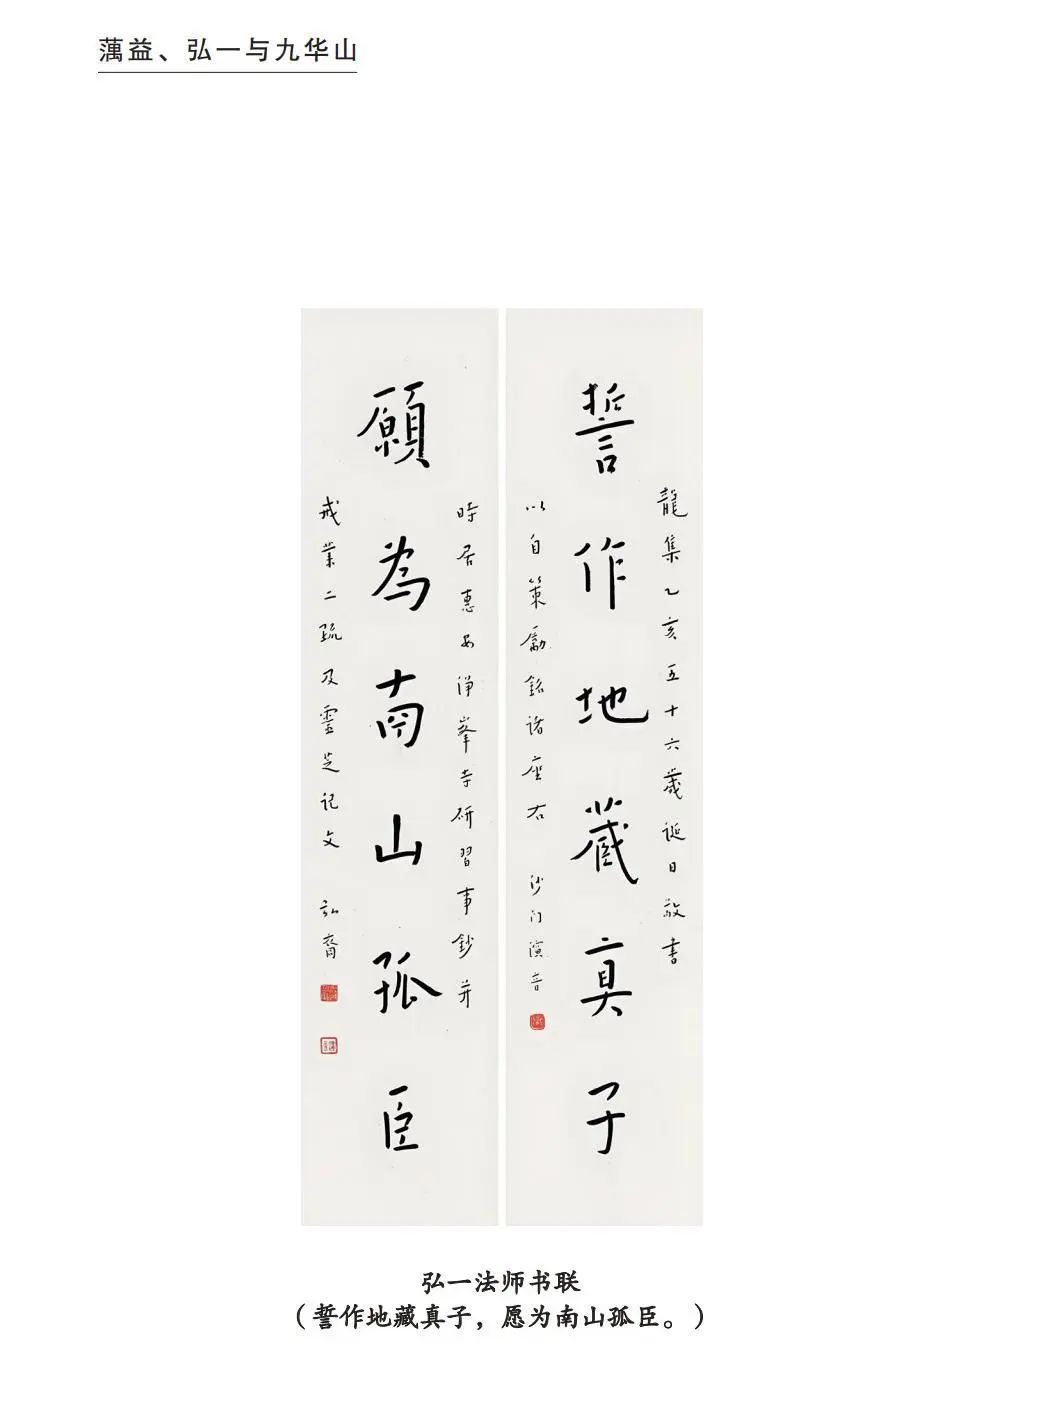 蕅益、弘一与九华山
龍集乙亥五十六歲誕日敬書
誓作地藏真子
以自策勵銘諸座右 沙门演音
時居惠安淨峯寺研習事鈔并
願為南山孤臣
戒業二疏及靈芝記文 弘裔
弘一法师书联
（誓作地藏真子，愿为南山孤臣。）